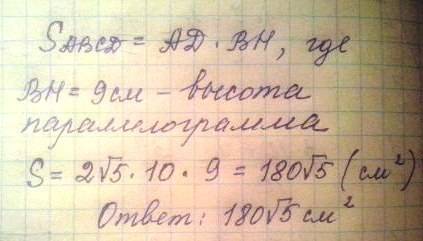 S ABCD = AD · BH, где
BH = 9 см – высота
параллелограмма
S = 2√5 · 10 · 9 = 180√5 (см²)
Ответ: 180√5 см²